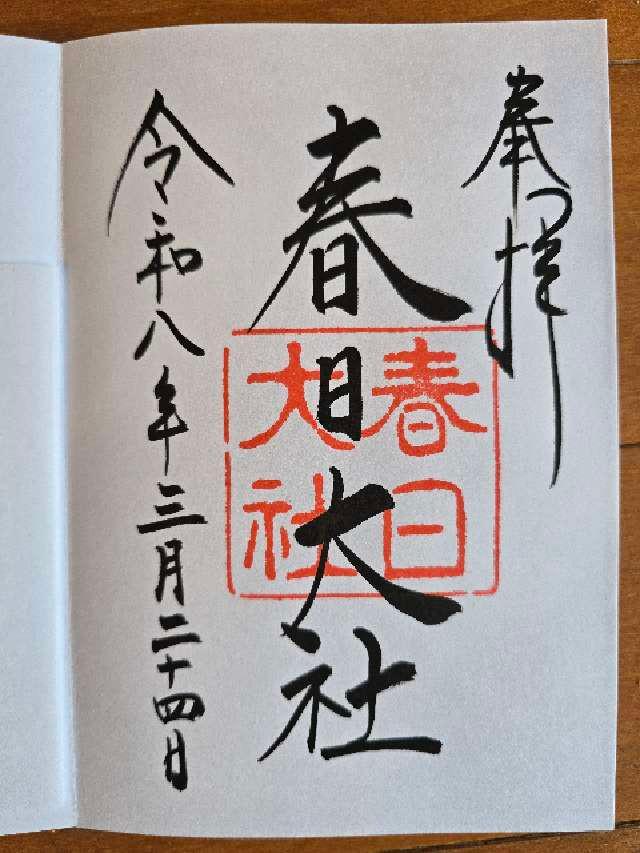 奉拝
春日大社
春日
大社
令和八年三月二十四日